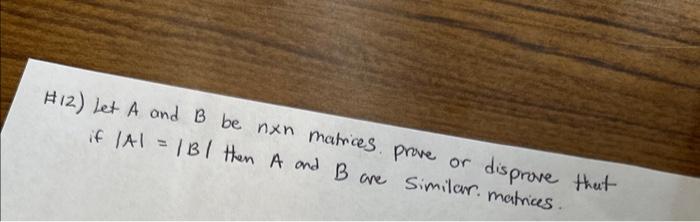 #12) Let A and B be nxn matrices. prove or disprove that
if |A| = |B| then A and B are similar. matrices.